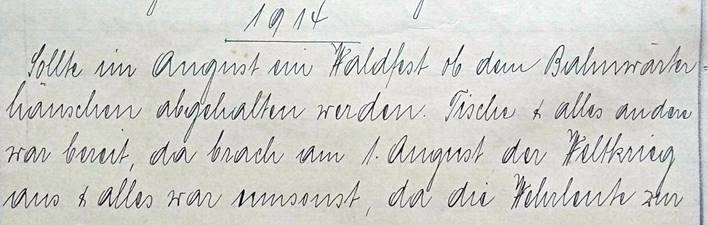 1914
Sollte im August ein Waldfest ob dem Bahnwärter-
häuschen abgehalten werden. Tische & alles andere
war bereit, da brach am 1. August der Weltkrieg
aus & alles war umsonst, da die Wehrleute zur